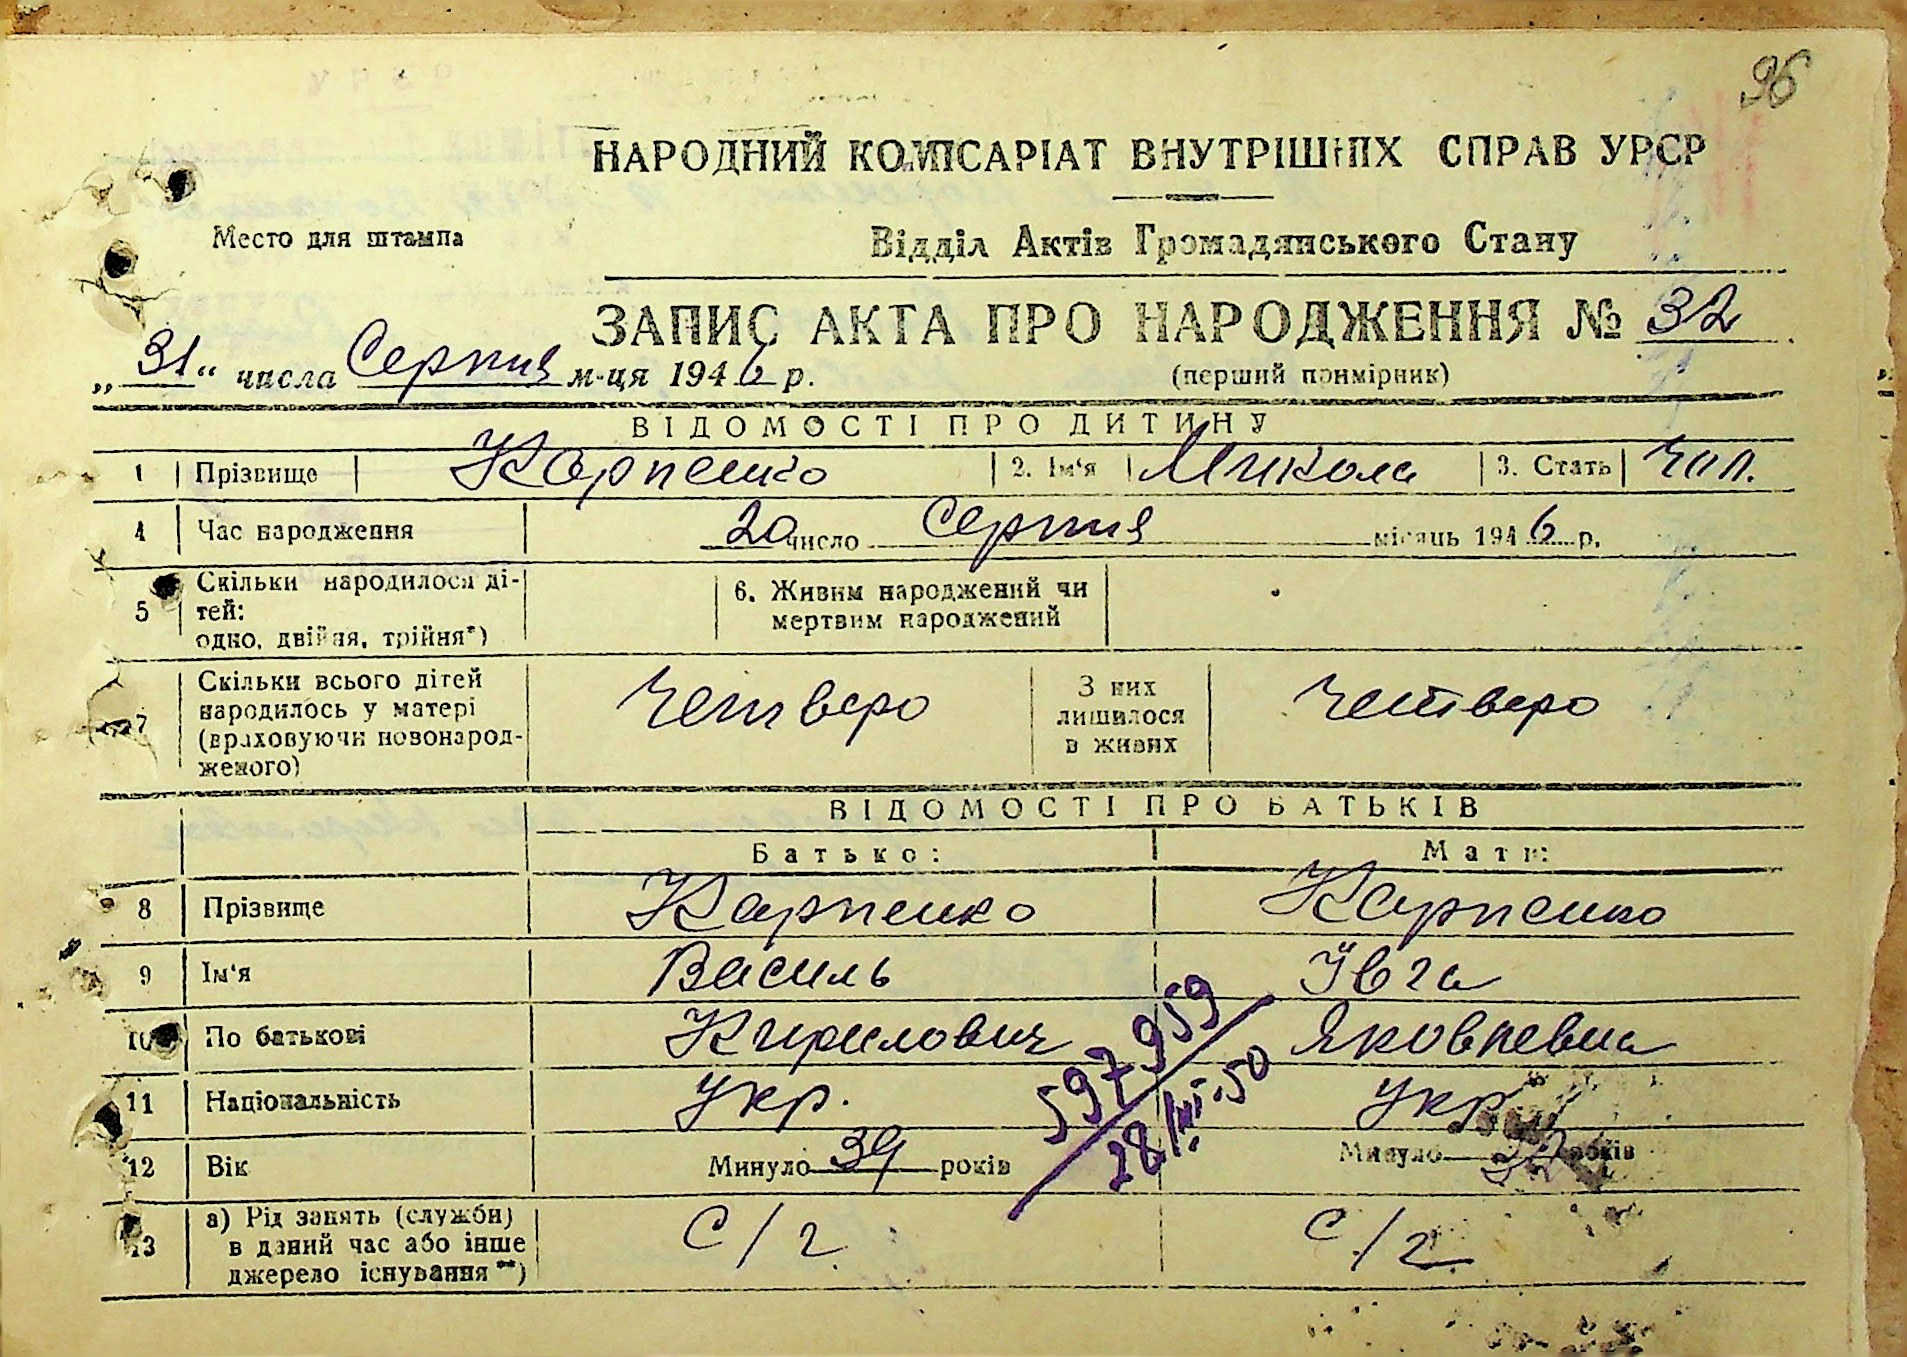 96
НАРОДНИЙ КОМІСАРІАТ ВНУТРІШНІХ СПРАВ УРСР
Место для штампа
Відділ Актів Громадянського Стану
ЗАПИС АКТА ПРО НАРОДЖЕННЯ № 32
„31“ числа Серпня м-ця 1946 р.
(перший примірник)
ВІДОМОСТІ ПРО ДИТИНУ
1 Прізвище Карпенко 2. Ім'я Микола 3. Стать чол.
4 Час народження 20 число Серпня місяць 1946 р.
5 Скільки народилося ді-
тей:
одно, двійня, трійня*)
6. Живим народжений чи
мертвим народжений
7 Скільки всього дітей
народилось у матері
(враховуючи новонарод-
женого)
Четверо
З них
лишилося
в живих
Четверо
ВІДОМОСТІ ПРО БАТЬКІВ
Батько: Мати:
8 Прізвище Карпенко Карпенко
9 Ім'я Василь Ївга
10 По батькові Кирилович Яковлевна
11 Національність Укр. Укр
12 Вік Минуло 39 років Минуло років
597959
28/VI-50
13 а) Рід занять (служби)
в даний час або інше
джерело існування**)
С/г С/г